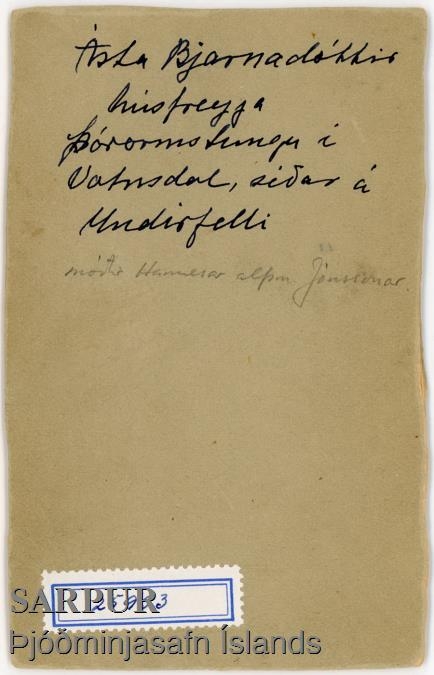 Ásta Bjarnadóttir
húsfreyja
Þórormstungu í
Vatnsdal, síðar á
Undirfelli
móðir Hannesar alþm. Jónssonar.
SARPUR
Þjóðminjasafn Íslands